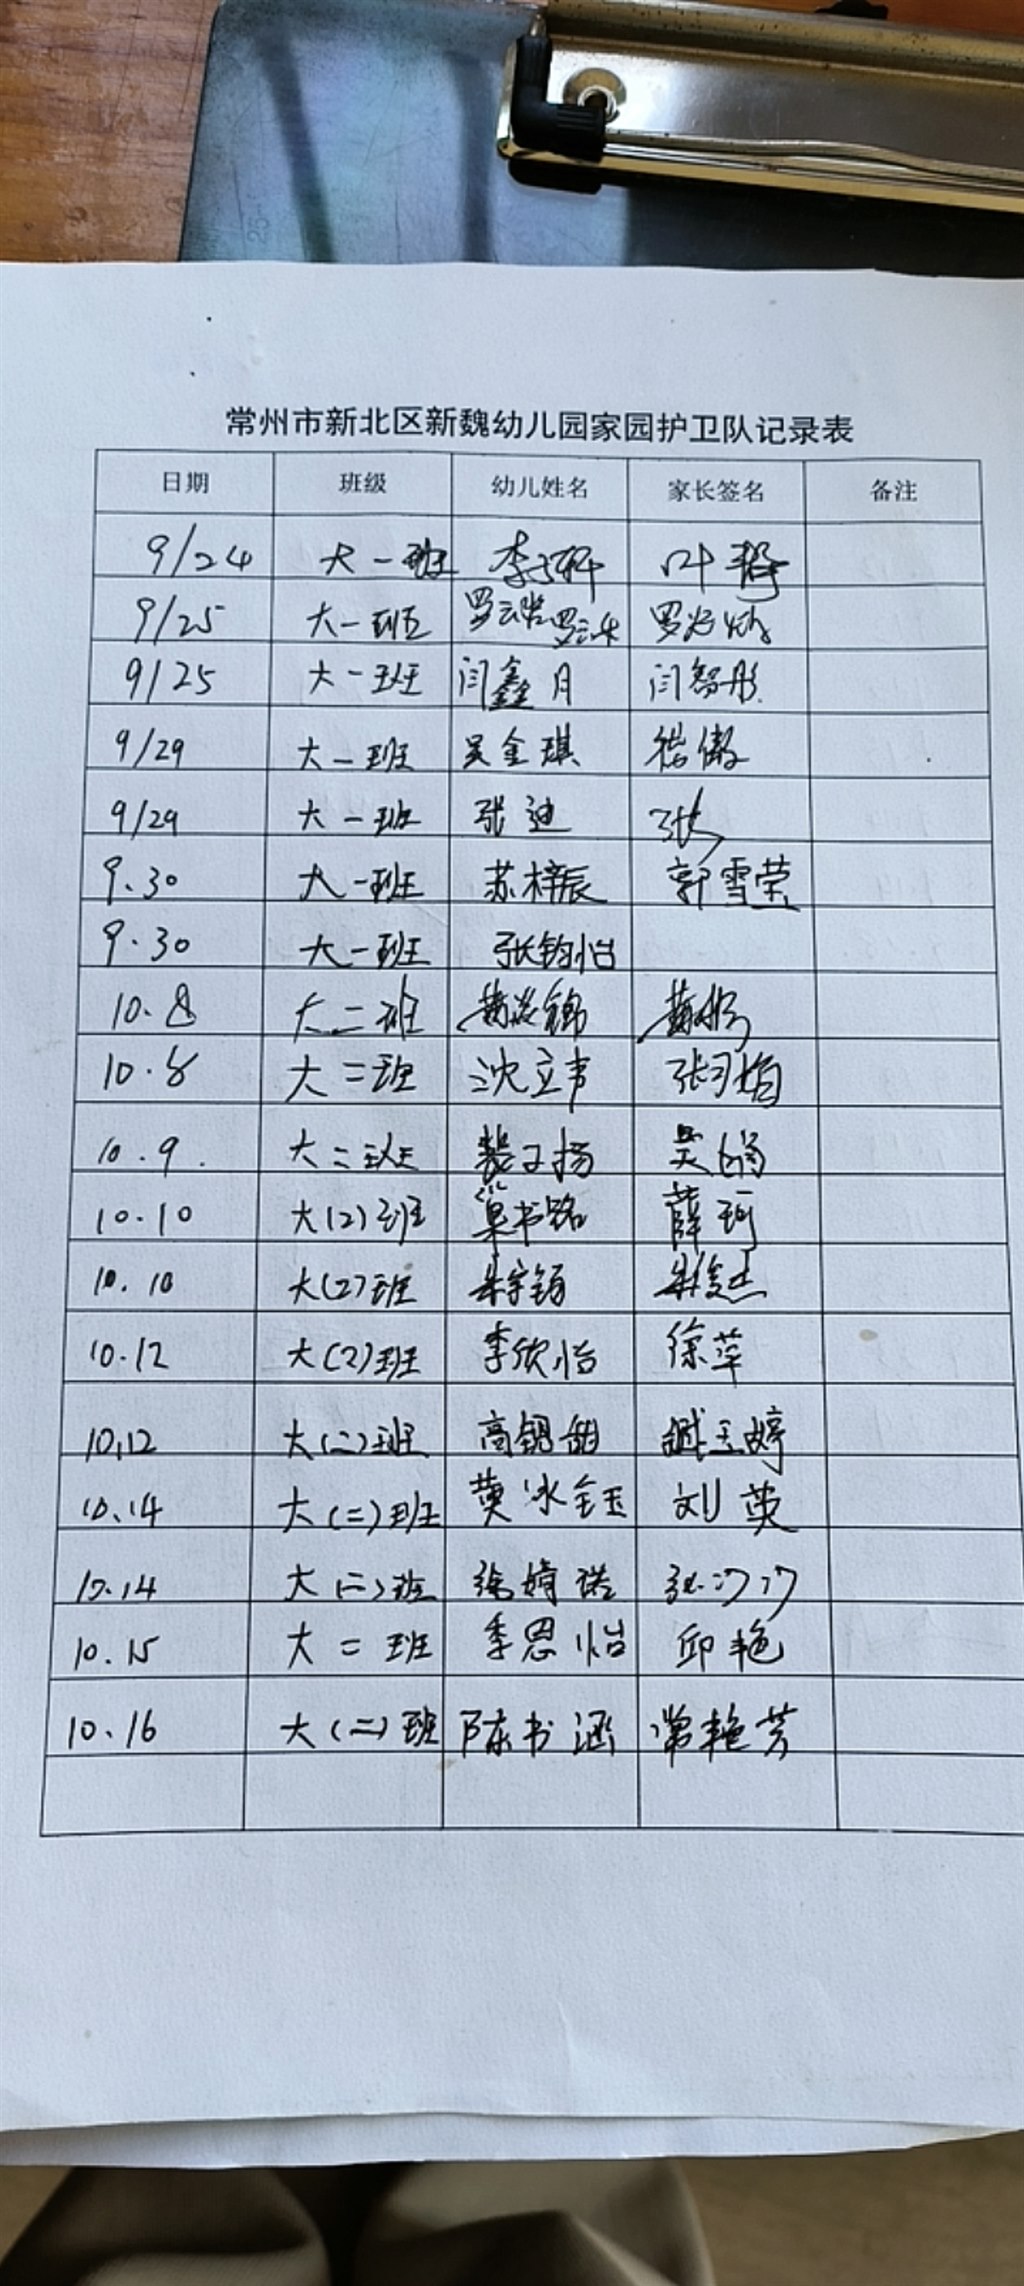 常州市新北区新魏幼儿园家园护卫队记录表
日期 班级 幼儿姓名 家长签名 备注
9/24 大一班 李子轩 叶
9/25 大一班 罗云 罗云 罗
9/25 大一班 闫鑫月 闫智彤
9/29 大一班 吴金琪 徐傲
9/29 大一班 张迪 张
9.30 大一班 苏梓辰 郭雪莹
9.30 大一班 张钧怡
10.8 大二班 黄 锦 黄
10.8 大二班 沈立 张 娟
10.9. 大二班 裴子扬 吴
10.10 大(2)班 巢书铭 薛珂
10.10 大(2)班 朱宇 朱
10.12 大(2)班 李欣怡 徐苹
10.12 大(二)班 高 甜 臧玉婷
10.14 大(二)班 黄冰钰 刘英
10.14 大(二)班 徐婧诺 张
10.15 大二班 季恩怡 邱艳
10.16 大(二)班 陈书涵 常艳芳